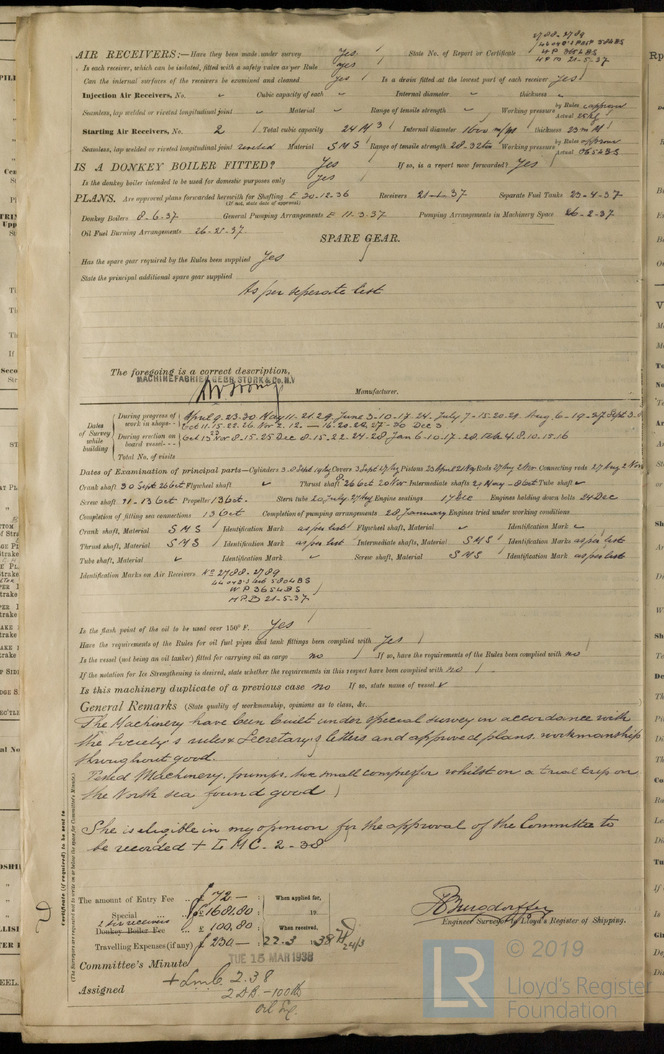 2788-2789
W P 365 LBS
21-5-37
AIR RECEIVERS:—Have they been made under survey Yes State No. of Report or Certificate
Is each receiver, which can be isolated, fitted with a safety valve as per Rule Yes
Can the internal surfaces of the receivers be examined and cleaned Yes Is a drain fitted at the lowest part of each receiver Yes
Injection Air Receivers, No. Cubic capacity of each Internal diameter thickness
Seamless, lap welded or riveted longitudinal joint Material Range of tensile strength Working pressure by Rules approved Actual
Starting Air Receivers, No. 2 Total cubic capacity 24 M3 Internal diameter 1600 m/m thickness 23 m M
Seamless, lap welded or riveted longitudinal joint welded Material S M S Range of tensile strength 28-32 tn Working pressure by Rules approved Actual 365 LBS
IS A DONKEY BOILER FITTED? Yes If so, is a report now forwarded? Yes
Is the donkey boiler intended to be used for domestic purposes only Yes
PLANS. Are approval plans forwarded herewith for Shafting E 30-12-36 Receivers 21-1-37 Separate Fuel Tanks 23-4-37
(If not, state date of approval)
Donkey Boilers 8-6-37 General Pumping Arrangements E 11-3-37 Pumping Arrangements in Machinery Space 26-2-37
Oil Fuel Burning Arrangements
SPARE GEAR.
Has the spare gear required by the Rules been supplied Yes
State the principal additional spare gear supplied
As per seperate list
The foregoing is a correct description,
MACHINEFABRIEK GEBR. STORK & Co. N.V
Manufacturer.
Dates of Survey while building
During progress of work in shops-- April 9. 23. 30 May 11. 21. 29 June 3-10-17-24 July 7-15-20-29 Aug 6-19-27 Sept 3.
Oct 11. 15. 22. 26 Nov 2. 12. — 16. 20. 24. 27-30 Dec 3
During erection on board vessel--- Oct 13 Nov 8-15-25 Dec 8-15-22-24-28 Jan 6-10-17-28 Feb 4. 8. 10. 15. 16
Total No. of visits
Dates of Examination of principal parts—Cylinders Covers Pistons Rods Connecting rods
Crank shaft 30 Sept 26 Oct Flywheel shaft Thrust shaft 26 Oct 20 Nov Intermediate shafts Tube shaft
Screw shaft 11-13 Oct Propeller 13 Oct. Stern tube 20 July 27 Aug Engine seatings 17 Dec Engines holding down bolts 24 Dec
Completion of fitting sea connections 13 Oct Completion of pumping arrangements 28 January Engines tried under working conditions
Crank shaft, Material S M S Identification Mark as per list Flywheel shaft, Material Identification Mark
Thrust shaft, Material S M S Identification Mark as per list Intermediate shafts, Material S M S Identification Marks as per list
Tube shaft, Material Identification Mark Screw shaft, Material S M S Identification Mark as per list
Identification Marks on Air Receivers No 2788-2789
W P 365 LBS
21-5-37
Is the flash point of the oil to be used over 150° F. Yes
Have the requirements of the Rules for oil fuel pipes and tank fittings been complied with Yes
Is the vessel (not being an oil tanker) fitted for carrying oil as cargo no If so, have the requirements of the Rules been complied with no
If the notation for Ice Strengthening is desired, state whether the requirements in this respect have been complied with no
Is this machinery duplicate of a previous case no If so, state name of vessel
General Remarks (State quality of workmanship, opinions as to class, &c.
The Machinery have been built under special survey in accordance with
the Society's rules & Secretary's letters and approved plans. workmanship
throughout good.
Tested Machinery, pumps, two small compressor whilst on a trial trip on
the North sea found good
She is eligible in my opinion for the approval of the Committee to
be recorded + L M C. 2-38
Certificate (if required) to be sent to
(The Surveyors are requested not to write on or below the space for Committee's Minute.)
The amount of Entry Fee £ 72— When applied for,
Special £ 1681.80 19
2 air receivers
Donkey Boiler Fee £ 100,80 When received,
Travelling Expenses (if any) £ 230— 22.3 1938
Engineer Surveyor to Lloyd's Register of Shipping.
Committee's Minute TUE 15 MAR 1938
Assigned + LMC 2.38
2 DB - 100 lb
oil Eng.
© 2019
LR
Lloyd's Register
Foundation